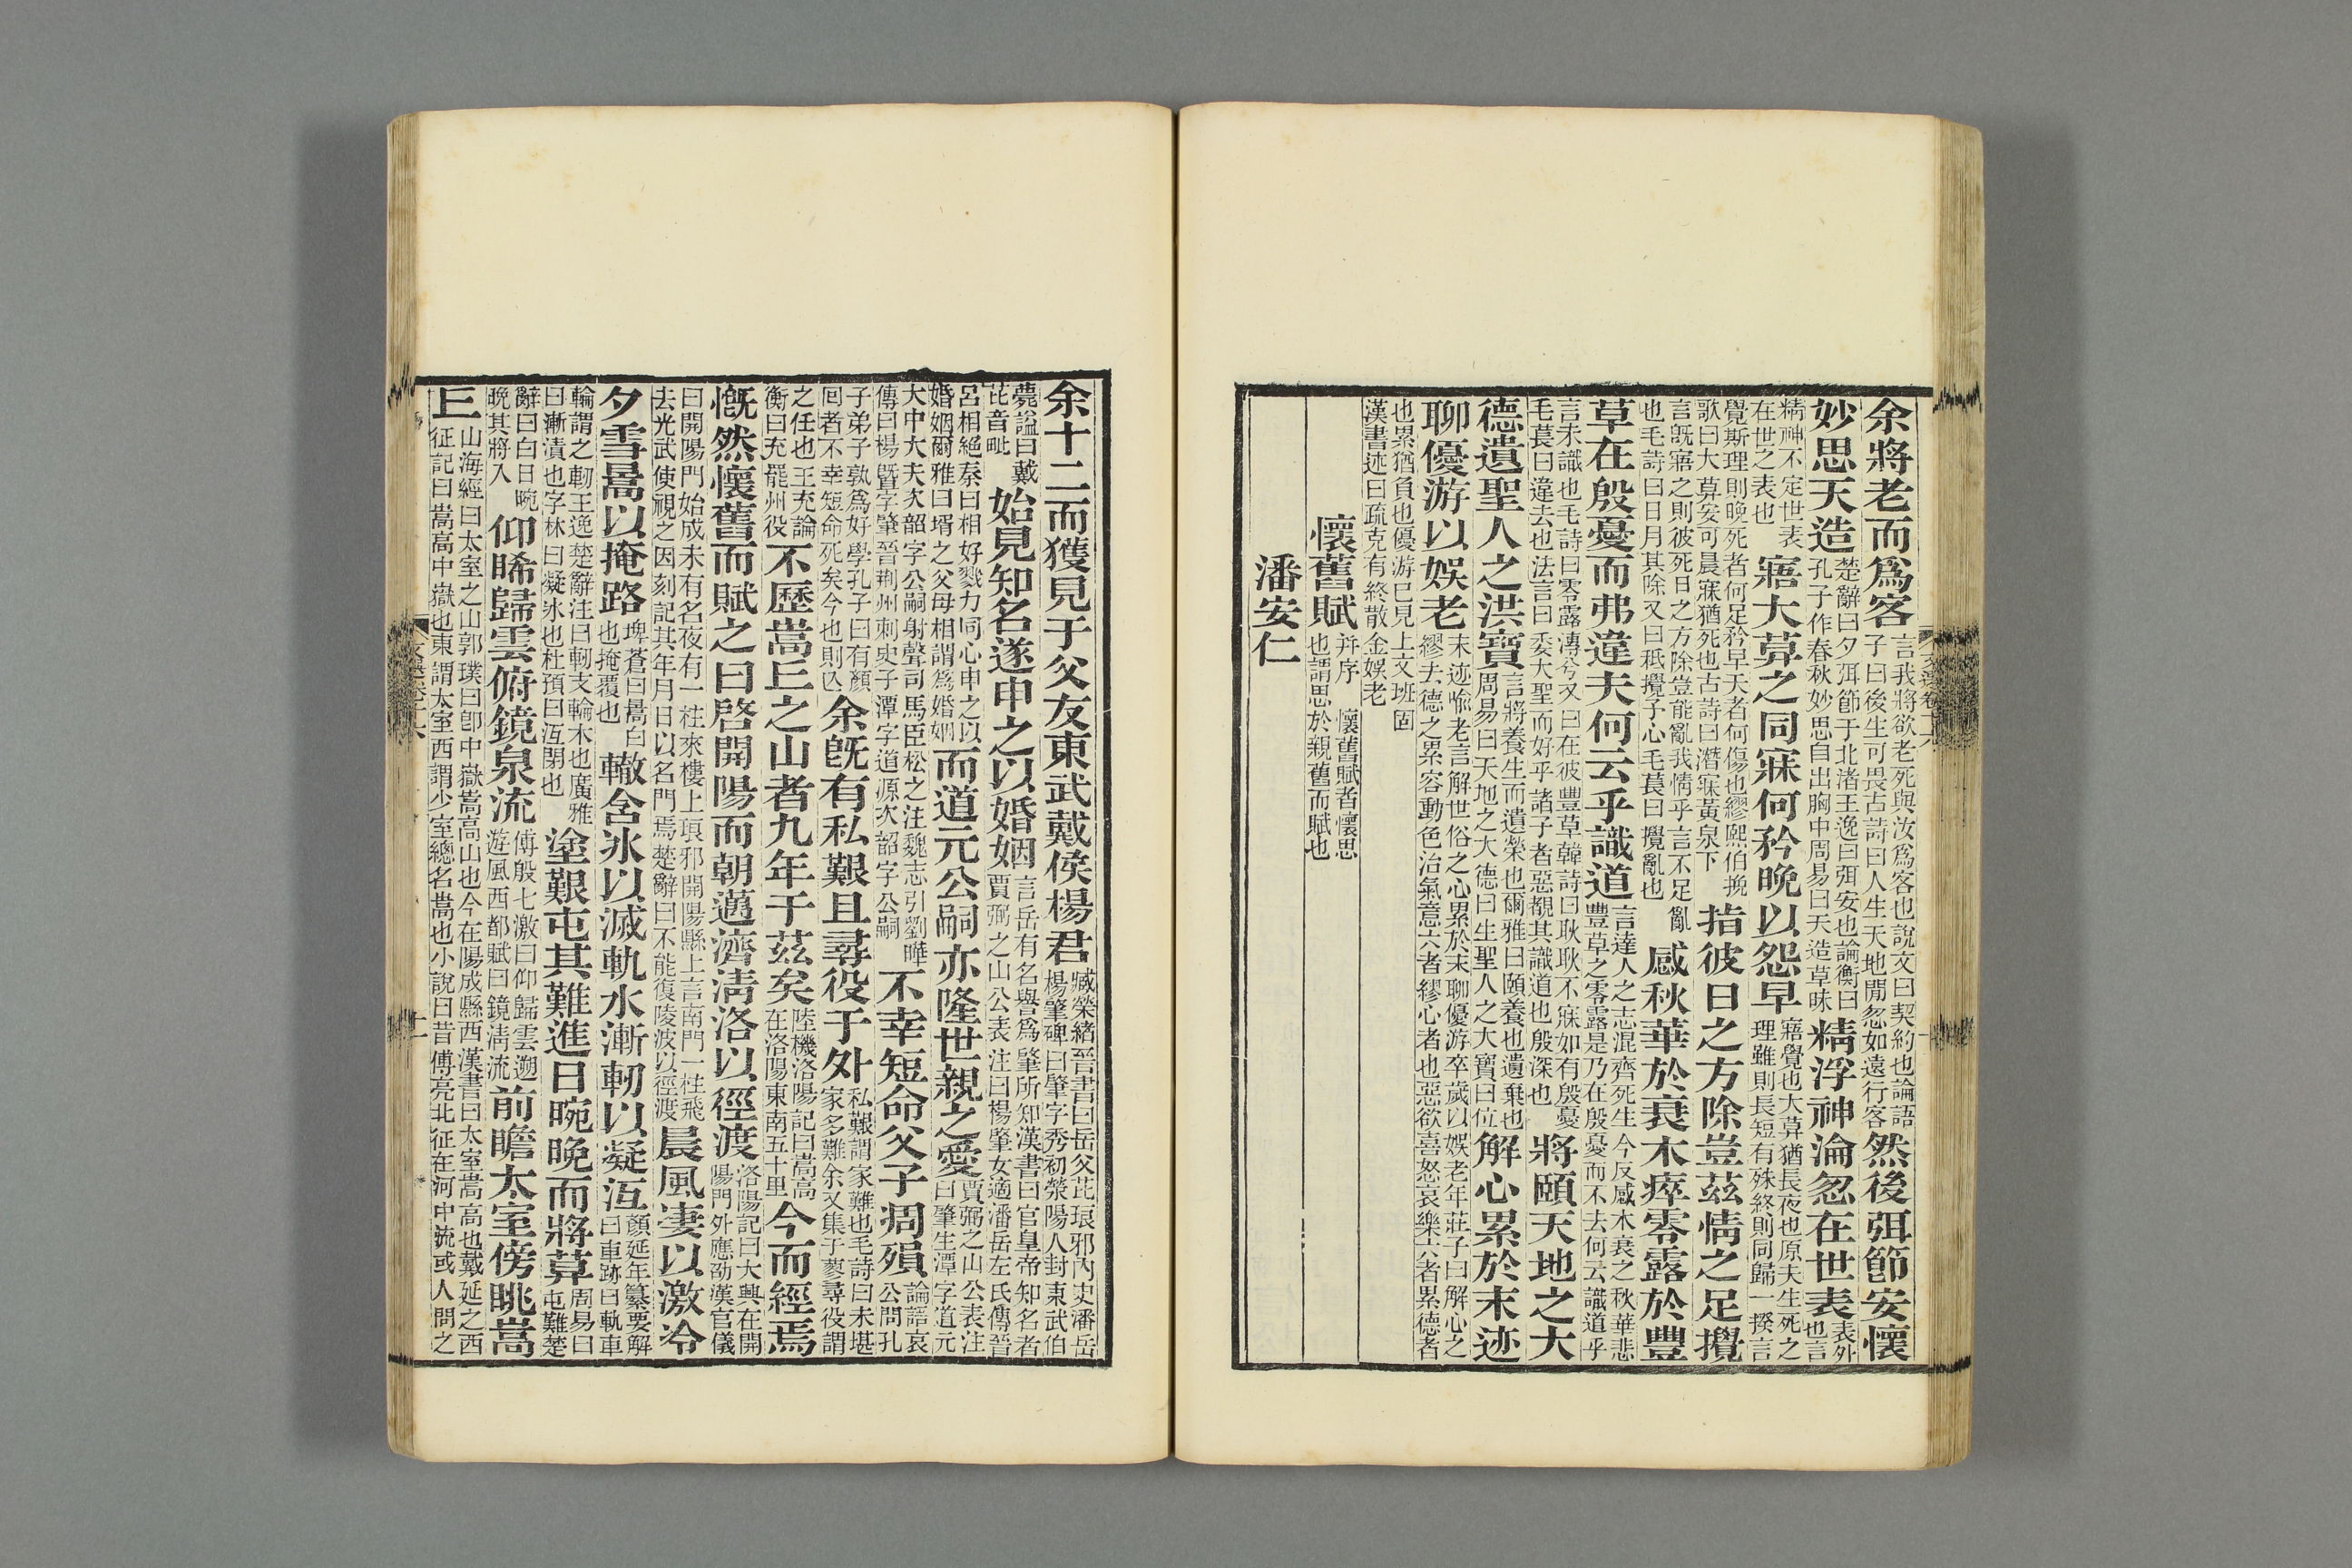 余將老而爲客言我將欲老死與汝爲客也說文曰契約也論語子曰後生可畏古詩曰人生天地閒忽如遠行客然後弭節安懷
妙思天造楚辭曰夕弭節于北渚王逸曰弭安也論衡曰孔子作春秋妙思自出胸中周易曰天造草昧精浮神淪忽在世表表外也言
精神不定世表在世之表也寤大暮之同寐何矜晚以怨早寤覺也大暮猶長夜也原夫生死之理雖則長短有殊終則同歸一揆言
覺斯理則晚死者何足矜早夭者何傷也繆熙伯挽歌曰大暮安可晨寐猶死也古詩曰潛寐黃泉下指彼日之方除豈茲情之足攪
言旣寤之則彼死日之方除豈能亂我情乎言不足亂也毛詩曰日月其除又曰秖攪予心毛萇曰攪亂也感秋華於衰木瘁零露於豐
草在殷憂而弗違夫何云乎識道言達人之志混齊死生今反感木衰之秋華悲豐草之零露是乃在殷憂而不去何云識道乎
言未識也毛詩曰零露漙兮又曰在彼豐草韓詩曰耿耿不寐如有殷憂毛萇曰違去也法言曰委大聖而好乎諸子者惡覩其識道也殷深也將頤天地之大
德遺聖人之洪寶言將養生而遺榮也爾雅曰頤養也遺棄也周易曰天地之大德曰生聖人之大寶曰位解心累於末迹
聊優游以娛老末迹喻老言解世俗之心累於末聊優游卒歲以娛老年莊子曰解心之繆去德之累容動色治氣意六者繆心者也惡欲喜怒哀樂六者累德者
也累猶負也優游已見上文班固漢書述曰疏克有終散金娛老
懷舊賦并序懷舊賦者懷思也謂思於親舊而賦也
潘安仁
余十二而獲見于父友東武戴侯楊君臧榮緒晉書曰岳父芘琅邪內史潘岳楊肇碑曰肇字秀初滎陽人封東武伯
薨謚曰戴芘音毗始見知名遂申之以婚姻言岳有名譽爲肇所知漢書曰官皇帝知名者賈弼之山公表注曰楊肇女適潘岳左氏傳晉
呂相絕秦曰相好戮力同心申之以婚姻爾雅曰壻之父母相謂爲婚姻而道元公嗣亦隆世親之愛賈弼之山公表注曰肇生潭字道元
大中大夫次韶字公嗣射聲司馬臣松之注魏志引劉曄傳曰楊曁字肇晉荊州刺史子潭字道源次韶字公嗣不幸短命父子凋殞論語哀公問孔
子弟子孰爲好學孔子曰有顏回者不幸短命死矣今也則亡余旣有私艱且尋役于外私艱謂家難也毛詩曰未堪家多難余又集于蓼尋役謂
之任也王充論衡曰充罷州役不歷嵩丘之山者九年于茲矣陸機洛陽記曰嵩高在洛陽東南五十里今而經焉
慨然懷舊而賦之曰啓開陽而朝邁濟淸洛以徑渡洛陽記曰大輿在開陽門外應劭漢官儀
曰開陽門始成未有名夜有一柱來樓上琅邪開陽縣上言南門一柱飛去光武使視之因刻記其年月日以名門焉楚辭曰不能復陵波以徑渡晨風凄以激冷
夕雪暠以掩路埤蒼曰暠白也掩覆也轍含冰以滅軌水漸軔以凝沍顏延年纂要解曰車跡曰軌車
輪謂之軔王逸楚辭注曰軔支輪木也廣雅曰漸漬也字林曰凝冰也杜預曰沍閉也塗艱屯其難進日晼晚而將暮周易曰屯難楚
辭曰白日晼晚其將入仰睎歸雲俯鏡泉流傅毅七激曰仰歸雲遡遊風西都賦曰鏡淸流前瞻太室傍眺嵩
丘山海經曰太室之山郭璞曰卽中嶽嵩高山也今在陽成縣西漢書曰太室嵩高也戴延之西征記曰嵩高中嶽也東謂太室西謂少室總名嵩也小說曰昔傅亮北征在河中流或人問之